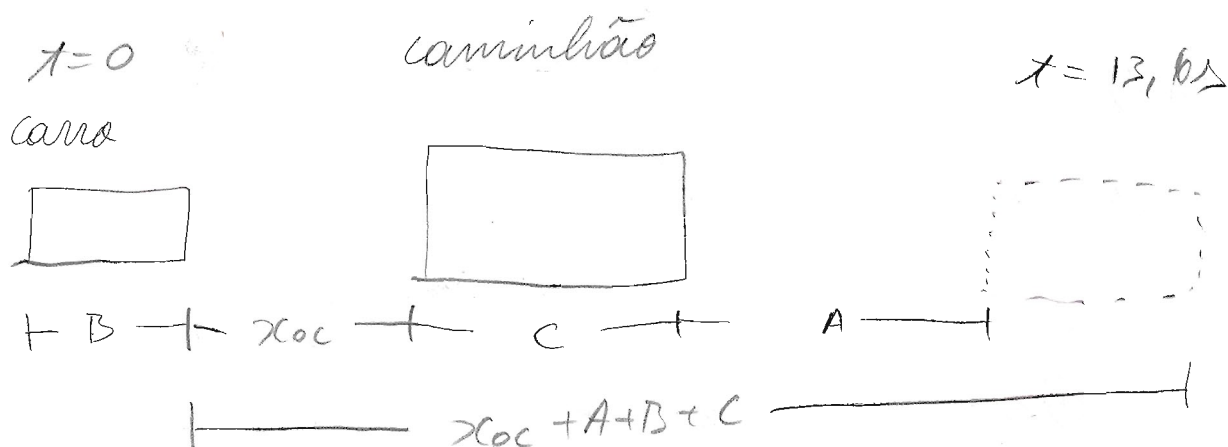 t=0
caminhão
t = 13,6s
carro
B
x0c
C
A
x0c + A + B + C